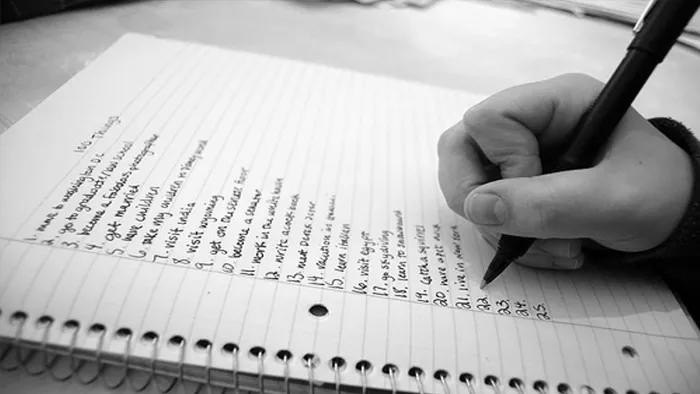 100 Things
1. move to washington D.C
2. go to graduate/law school
3. become a fabulous photographer
4. get married
5. have children
6. take my children to disney world
7. visit India
8. visit wyoming
9. get on the senate floor
10. become a senator
11. work in the white house
12. write a cookbook
13. meet Derek Jeter
14. vacation in hawaii
15. learn italian
16. visit egypt
17. go skydiving
18. learn to snowboard
19. catch a squirrel
20. have a pet
21. live in new york
22.
23.
24.
25.